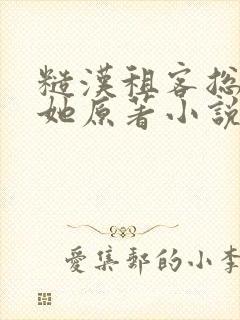 糙漢租客总
她原著小說
愛集郵的小李